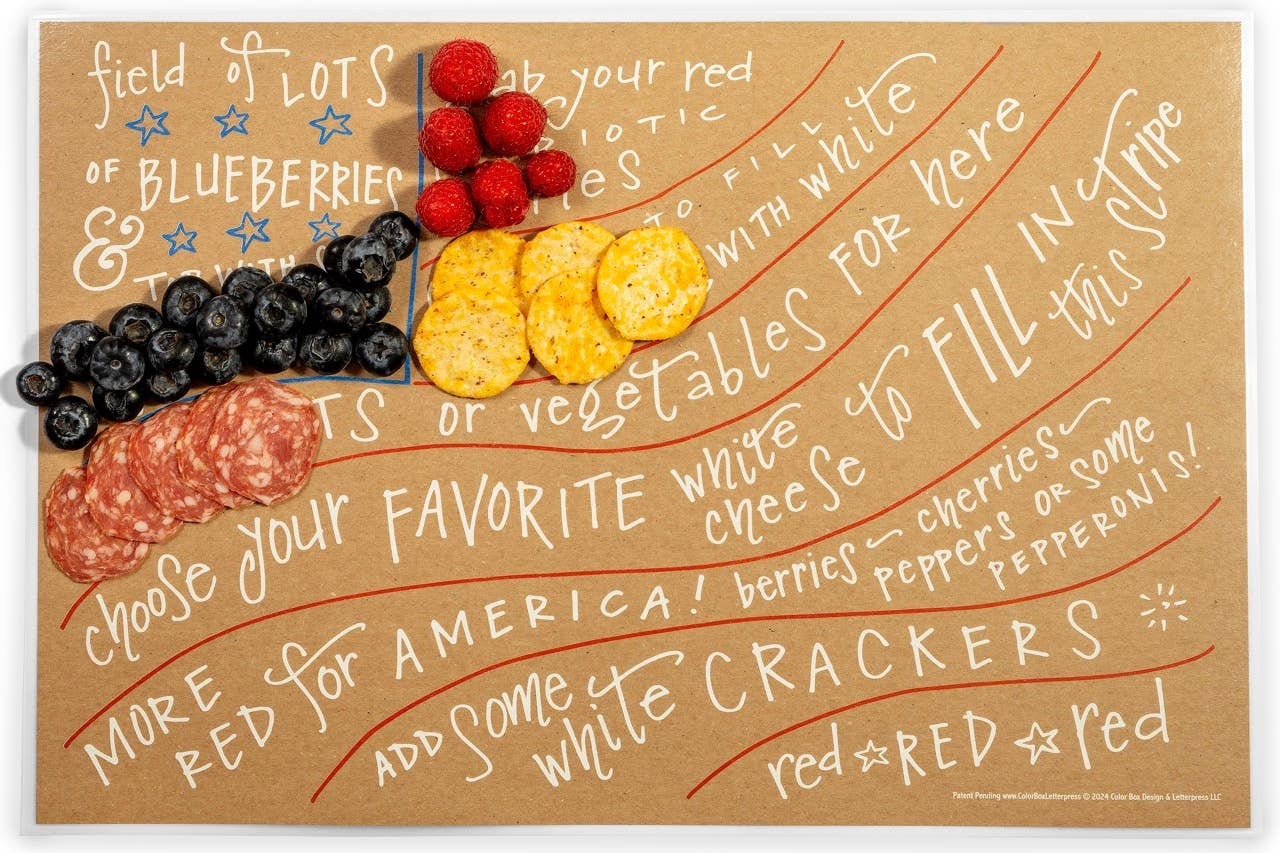 field of LOTS
OF BLUEBERRIES
&
your red
TO FILL
WITH white
or vegetables FOR here
choose your FAVORITE white cheese to FILL IN this stripe
MORE RED for AMERICA! berries cherries peppers OR SOME PEPPERONIS!
ADD Some white CRACKERS
red RED red
Patent Pending www.ColorBoxLetterpress © 2024 Color Box Design & Letterpress LLC